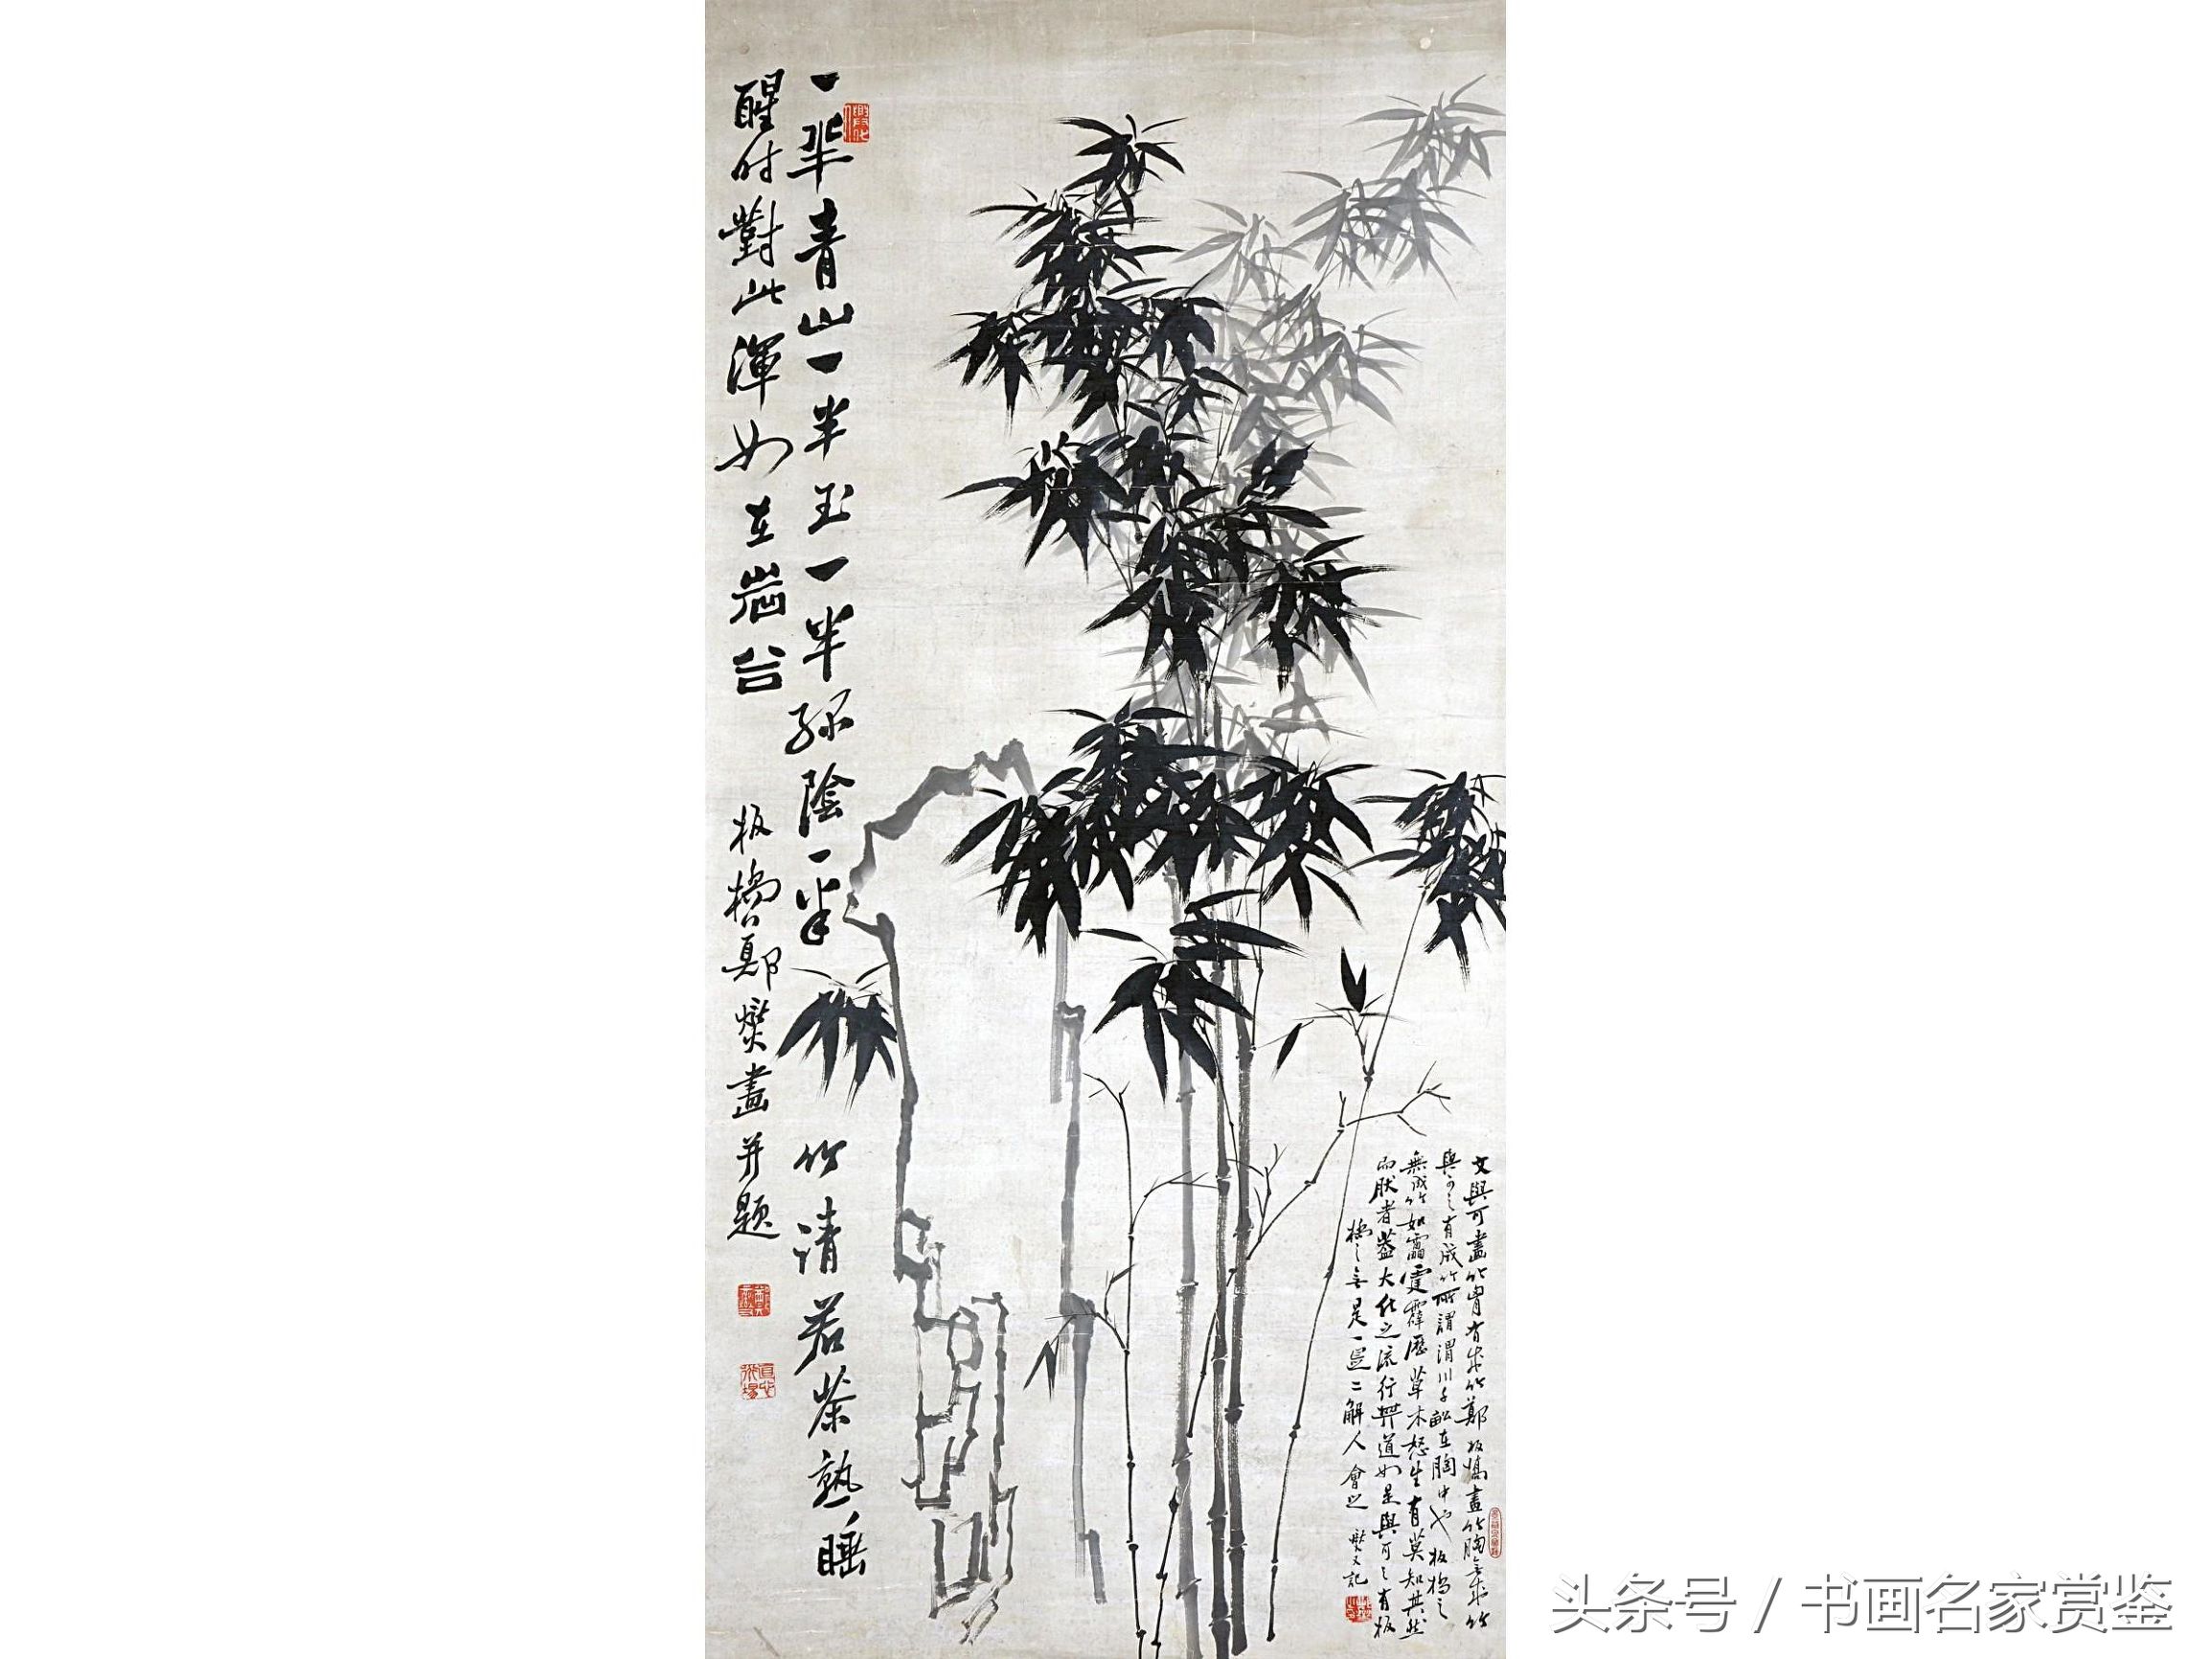 文與可畫竹胷有成竹鄭板橋畫竹胸無成竹
與可之有成竹所謂渭川千畝在胸中也板橋之
無成竹如雷霆霹歷草木怒生有莫知其然
而然者蓋大化之流行其道如是與可之有板
橋之無是一是二解人會之 燮又記
一半青山一半玉一半綠陰一半竹請君茶熟睡
醒時對此渾如在嵒谷 板橋鄭燮畫并題
头条号 / 书画名家赏鉴